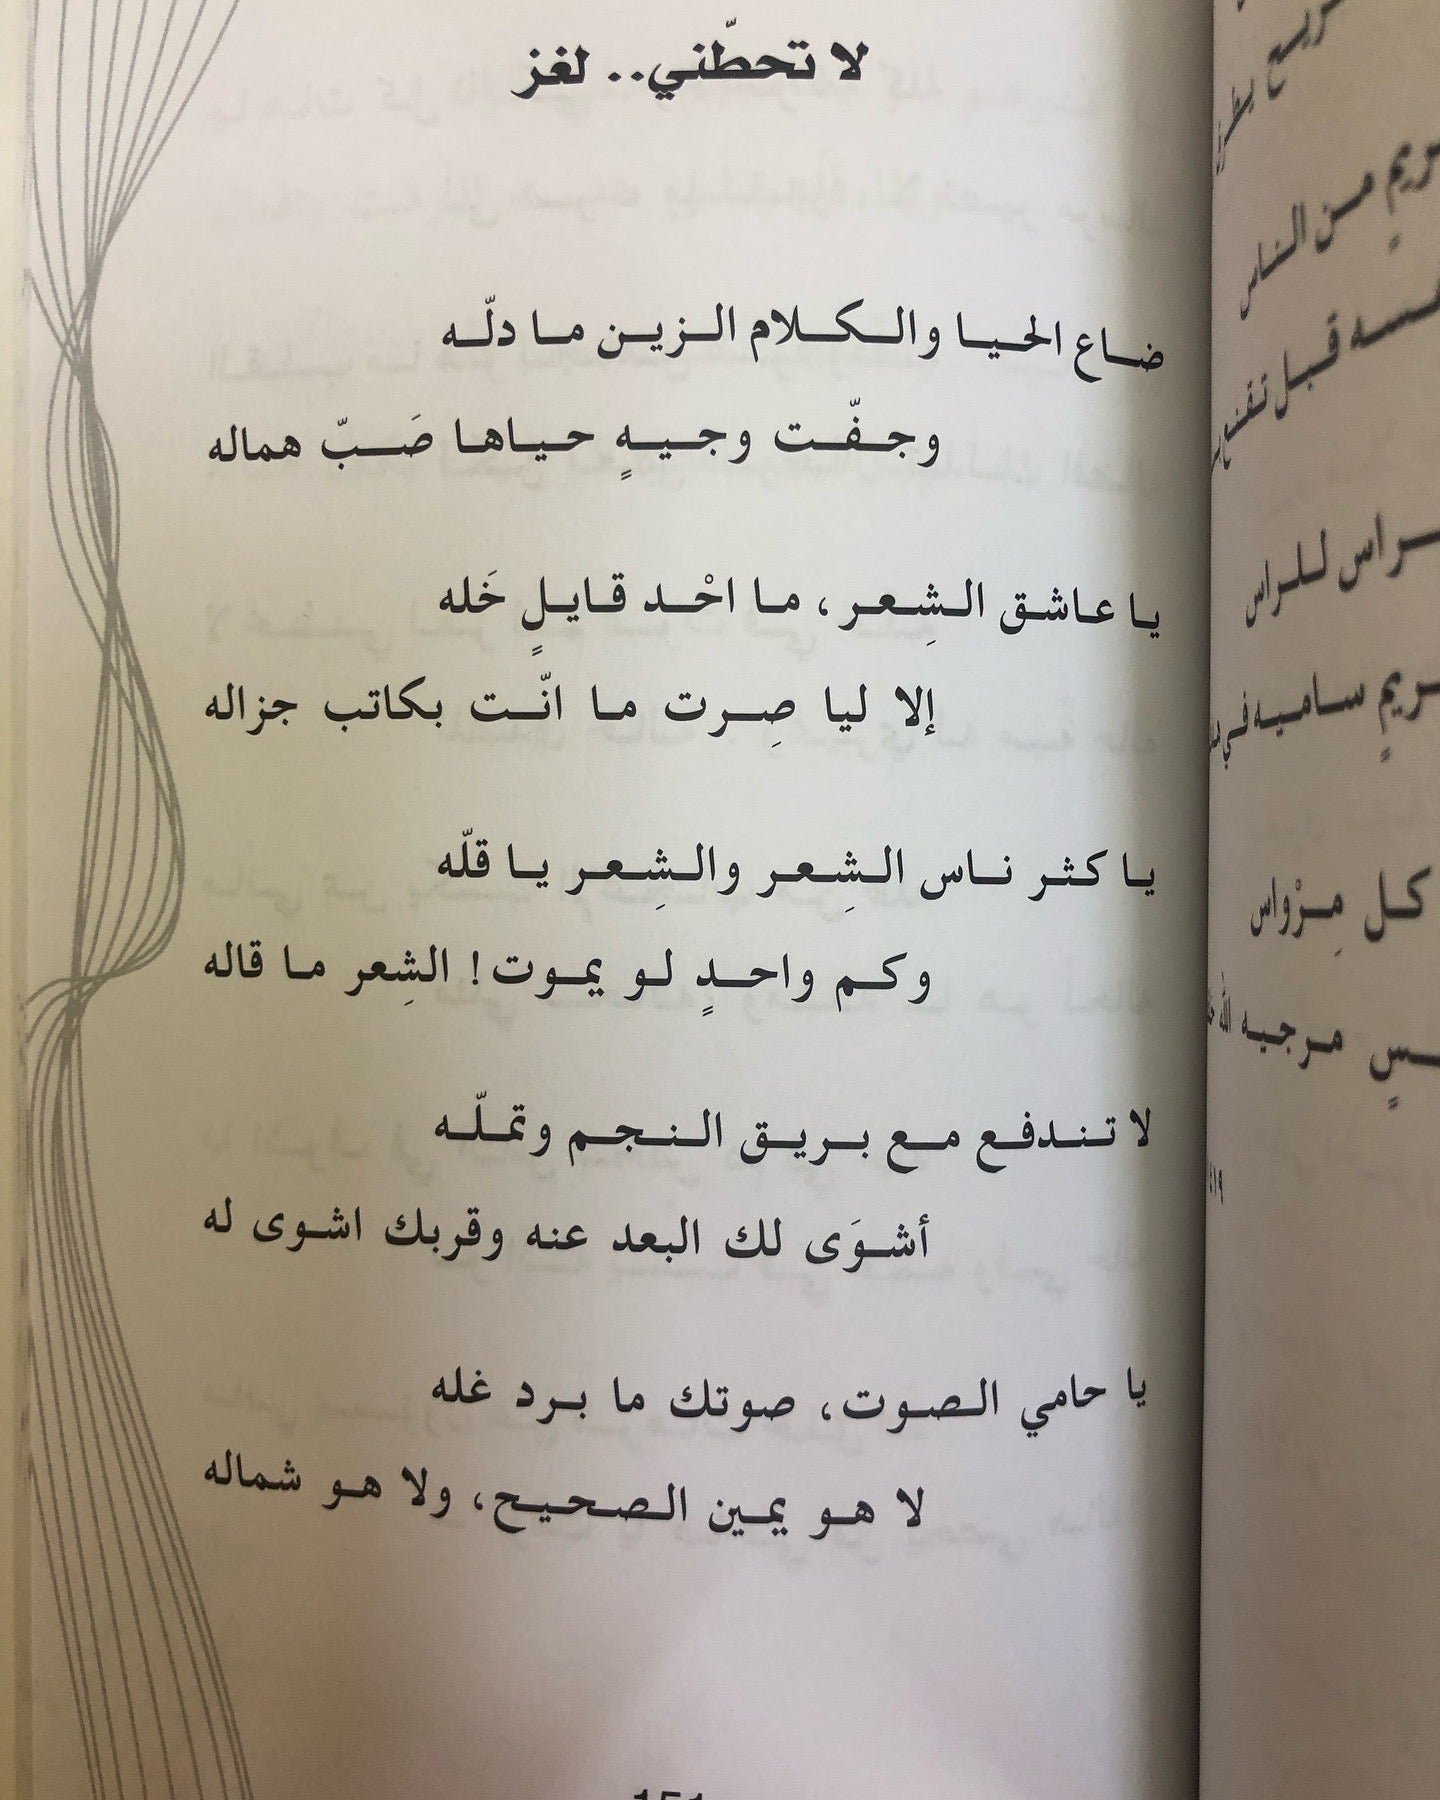 لا تحطّني.. لغز
ضاع الحيا والكلام الزين ما دلّه
وجفّت وجيهٍ حياها صَبّ هماله
يا عاشق الشِعر، ما احْد قايلٍ خَله
إلا ليا صِرت ما انّت بكاتب جزاله
يا كثر ناس الشِعر والشِعر يا قلّه
وكم واحدٍ لو يموت! الشِعر ما قاله
لا تندفع مع بريق النجم وتملّه
أشوَى لك البعد عنه وقربك اشوى له
يا حامي الصوت، صوتك ما برد غله
لا هو يمين الصحيح، ولا هو شماله
من الناس
قبل
راس للراس
ساميه في
كل مِرْواس
مرجيه الله